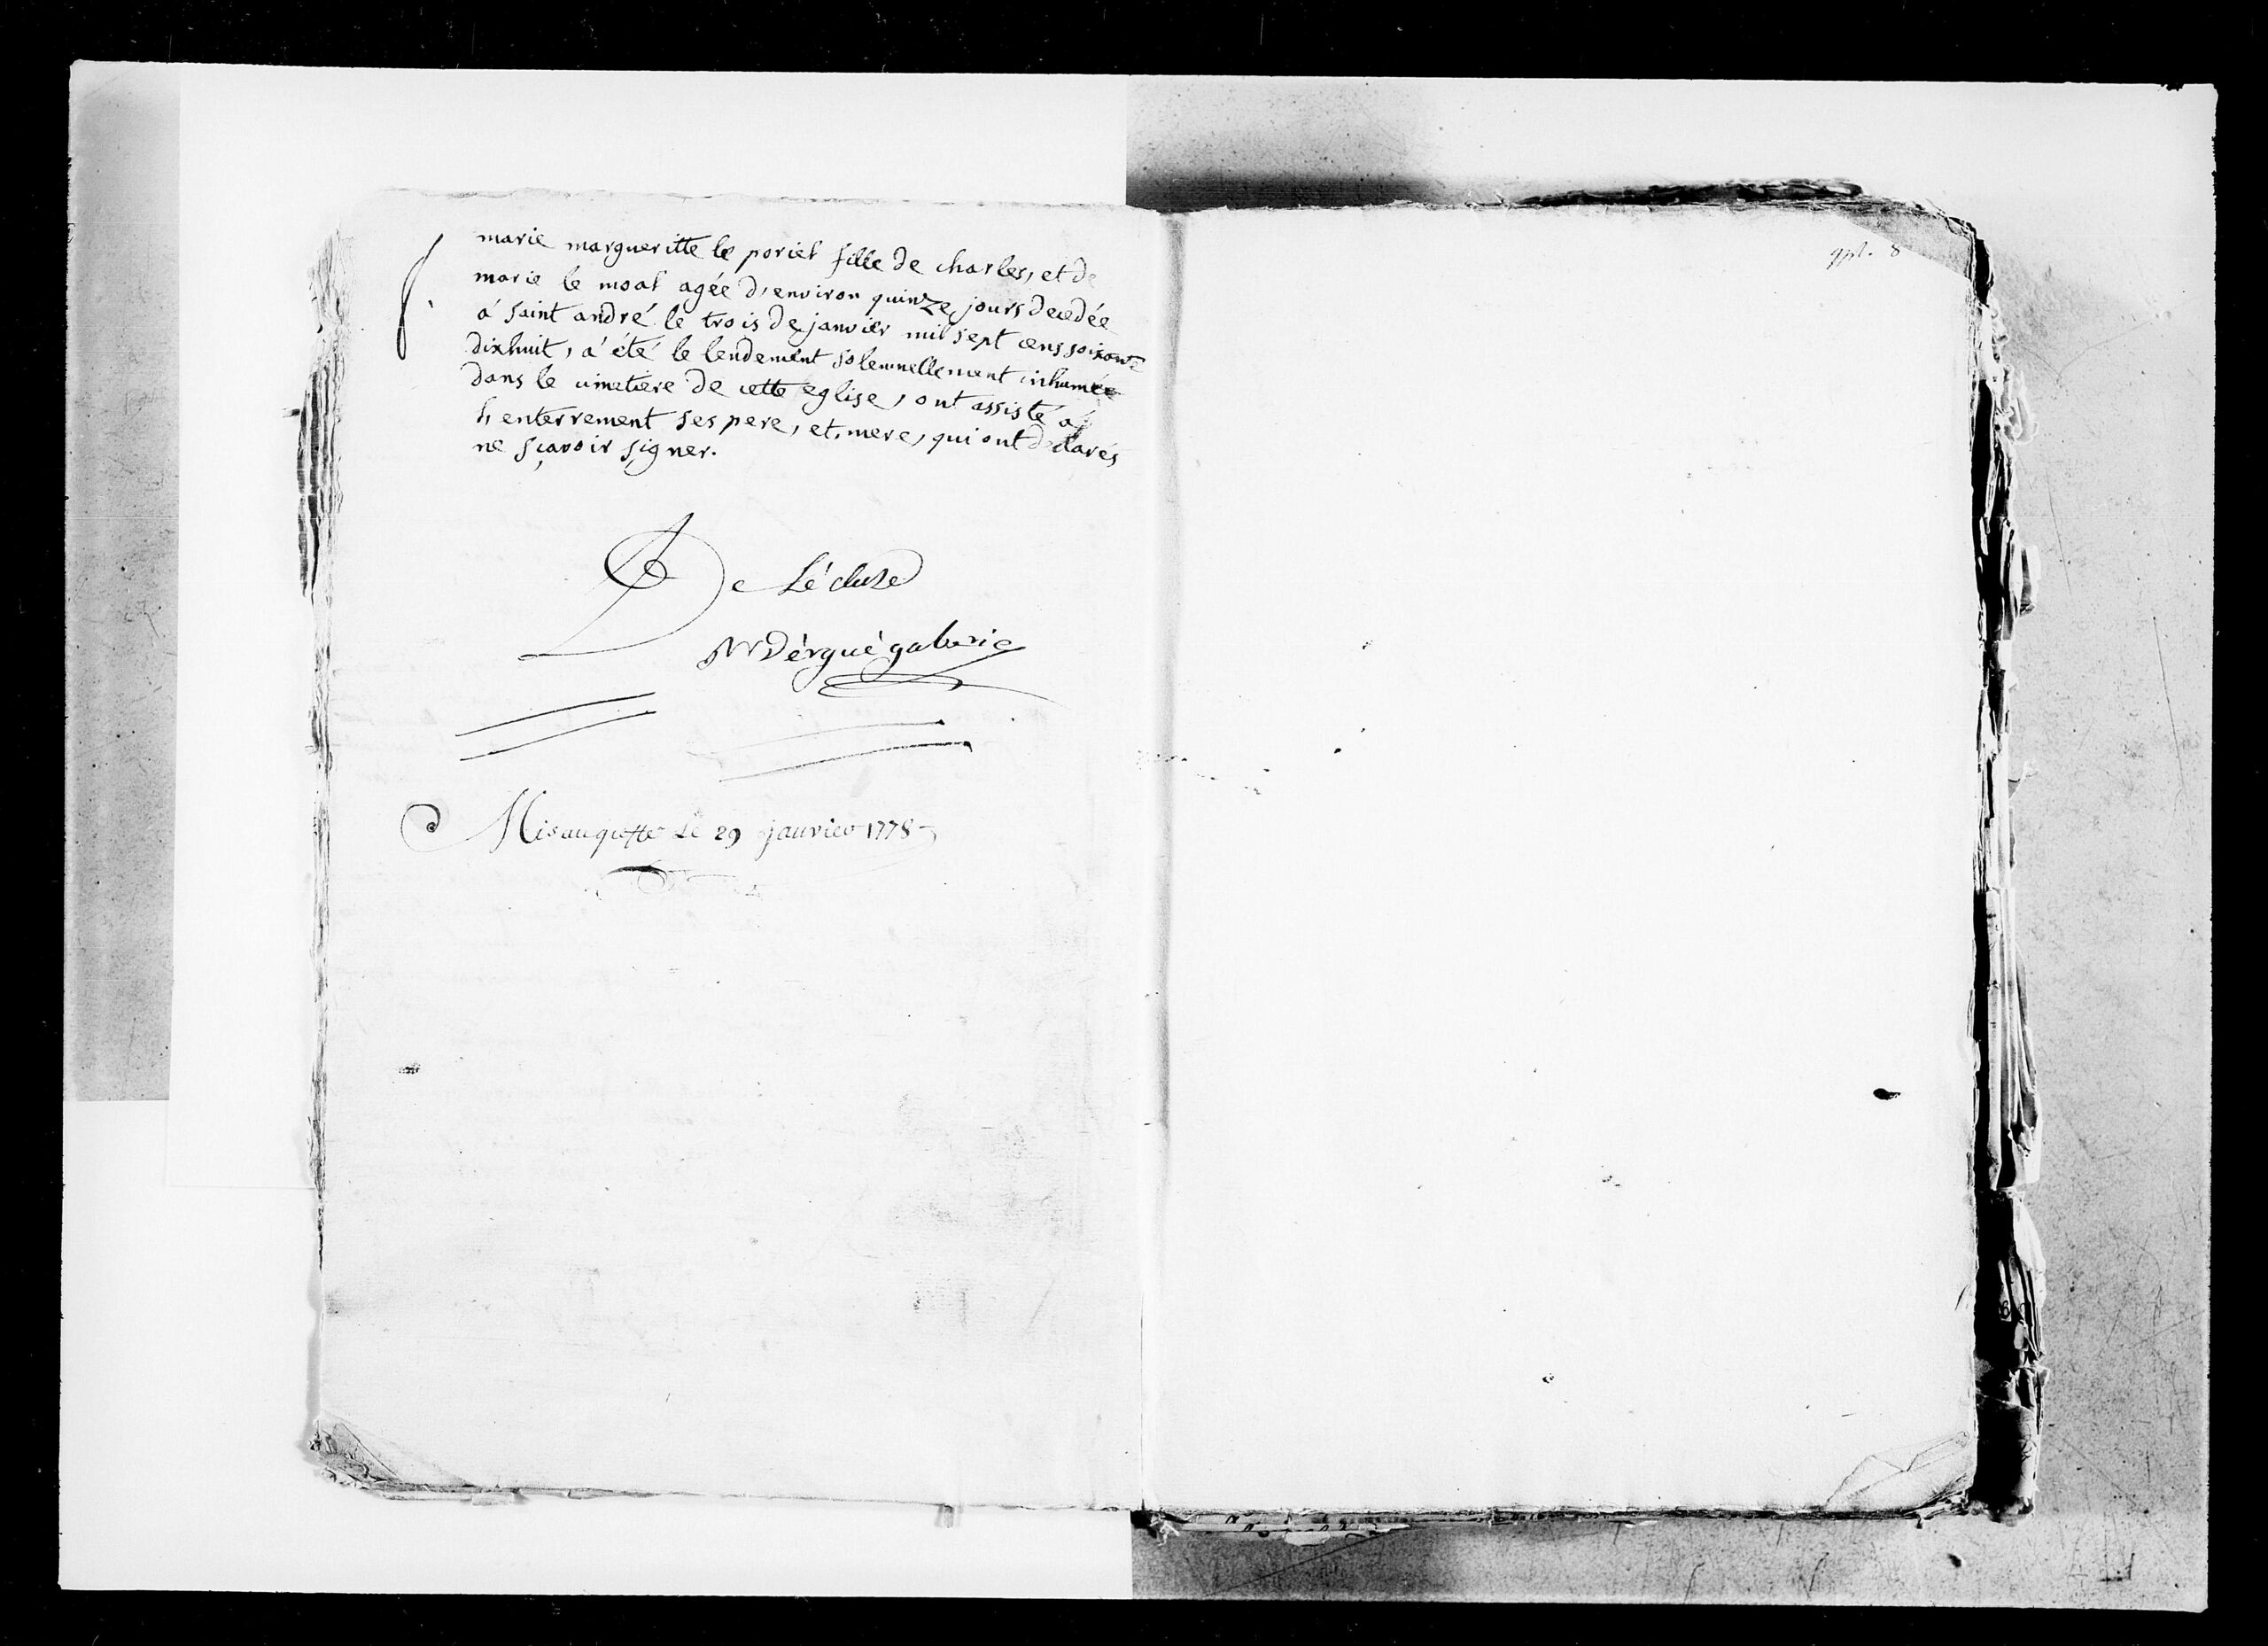 marie margueritte le poriel fille de charles, et de
marie le moal agée d'environ quinze jours decedée
á saint andré le trois de janvier mil sept cens soixante
dixhuit, a été le lendemént solemnellement inhumée
dans le cimetiere de cette eglise, ont assisté á
l'enterrement ses pere, et, mere, qui ont declarés
ne sçavoir signer.
De Lécluse
Vr Dèrguè gaberic
Mis au greffe Le 29 janvier 1778